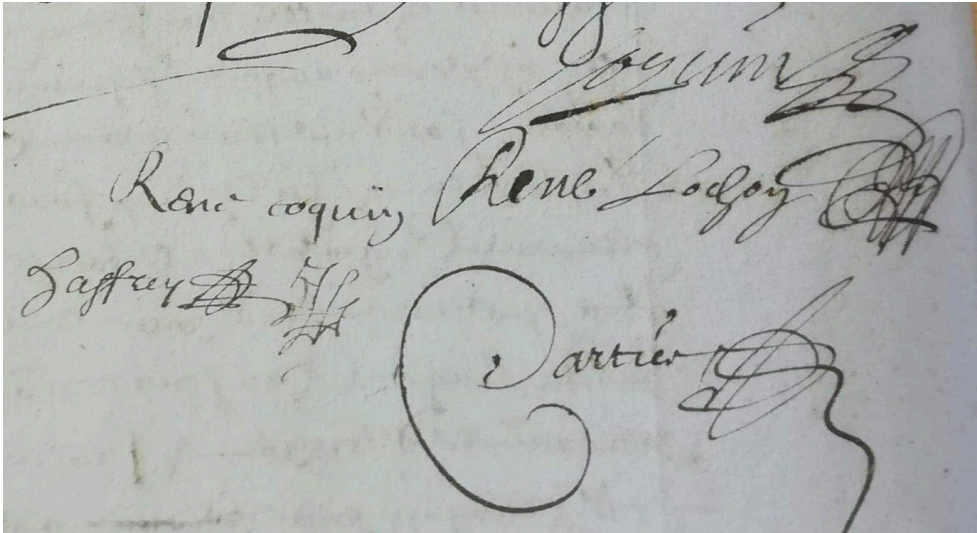 René coquin René Lochon
Jaffrey
Cartier